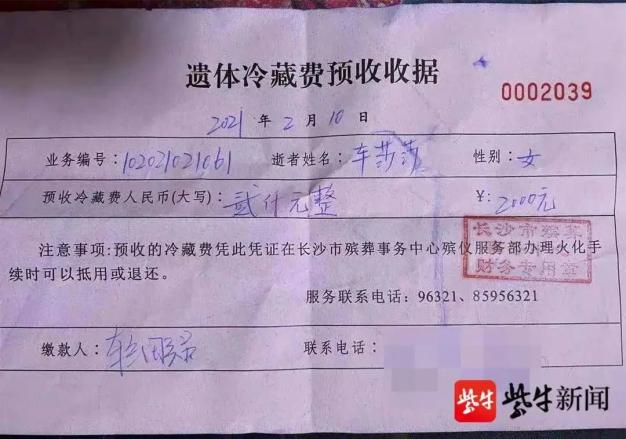 遗体冷藏费预收收据
0002039
2021 年 2 月 10 日
业务编号：102021021061 逝者姓名：车莎莎 性别：女
预收冷藏费人民币(大写)：贰仟元整 ¥：2000元
长沙市殡葬
注意事项:预收的冷藏费凭此凭证在长沙市殡葬事务中心殡仪服务部办理火化手
续时可以抵用或退还。
财务专用章
服务联系电话：96321、85956321
缴款人：车国
联系电话：
紫牛 紫牛新闻